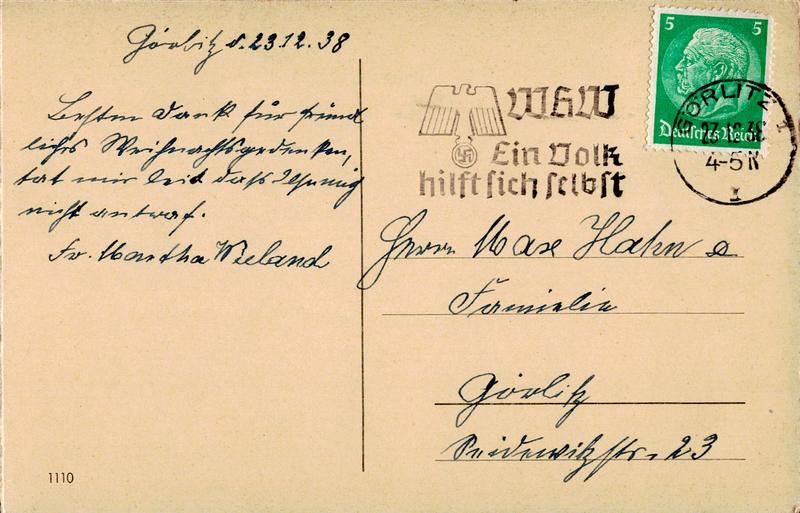 Görlitz d. 23.12.38
Besten Dank für freund
liches Weihnachtsgedenken,
tat mir leid dass
nicht antraf.
Fr. Martha Wieland
1110
WHW
Ein Volk
hilft sich selbst
5 5
Deutsches Reich
GÖRLITZ 1
23.12.38
4-5N
Herrn Max Hahn &
Familie
Görlitz
Seidewitzstr. 23